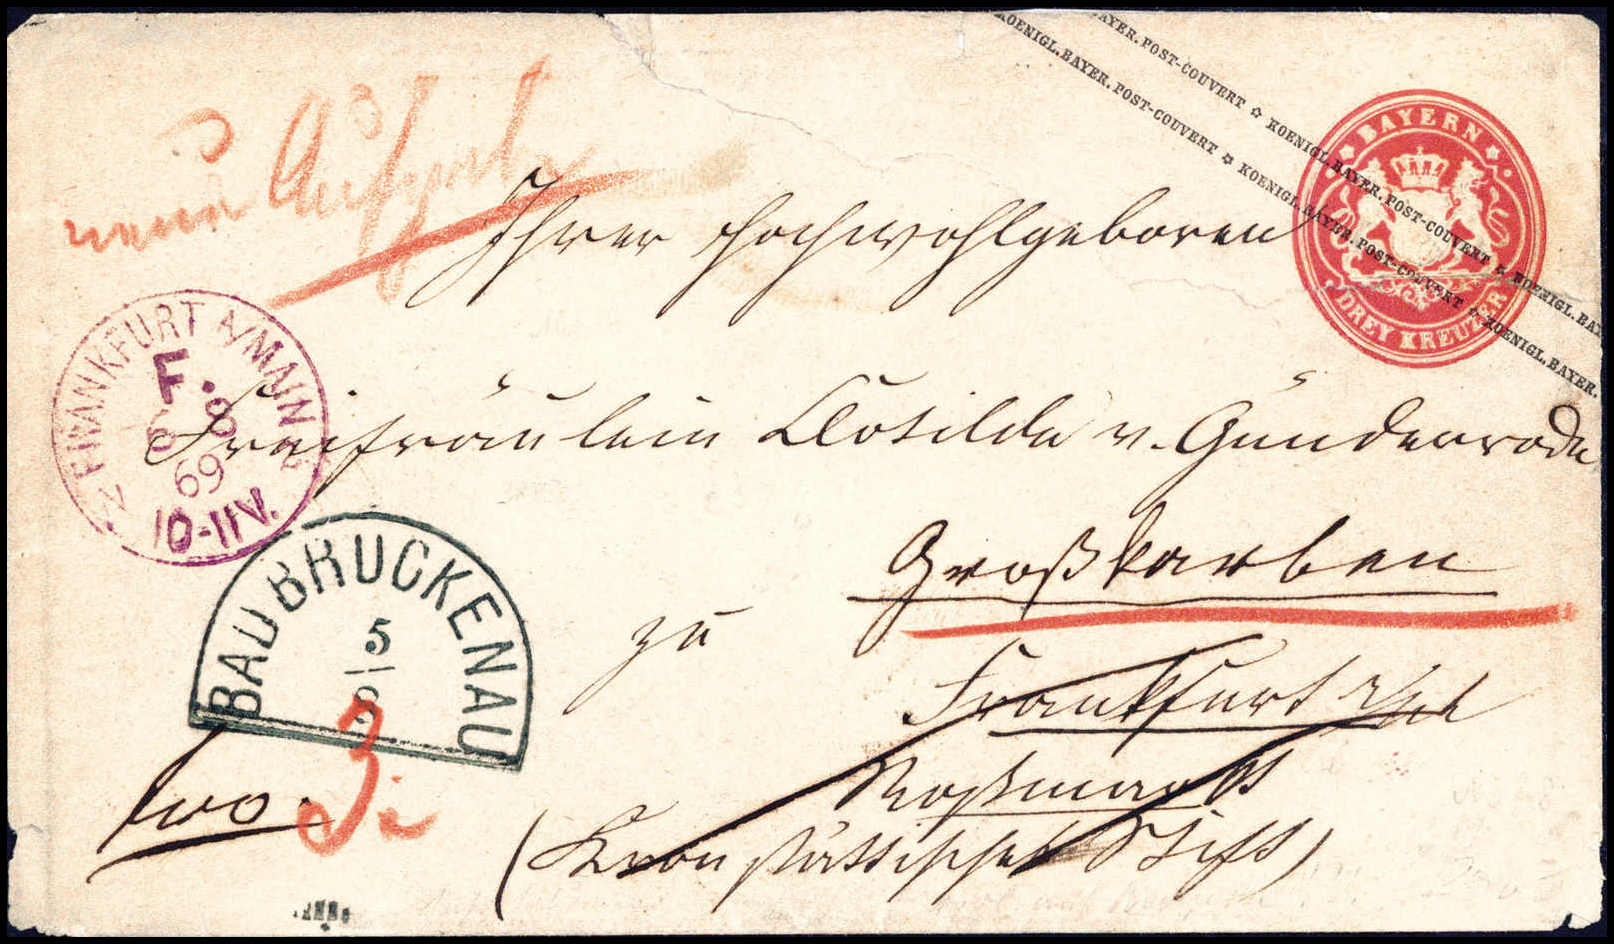 KOENIGL.BAYER.POST-COUVERT ☆ KOENIGL.BAYER.POST-COUVERT ☆ KOENIGL.BAY
KOENIGL.BAYER.POST-COUVERT ☆ KOENIGL.BAYER.POST-COUVERT ☆ KOENIGL.BAYER.
BAYERN
DREY KREUZER
Ihrer Hochwohlgeboren
Freifräulein Clotilde v. Günderrode
Großkarben
zu
Frankfurt a/M
Roßmarkt
(Kronstättisches Stift)
FRANKFURT A/MAIN
F.
6 8
69
10-11V.
BAD BRÜCKENAU
5
8
fro.
3